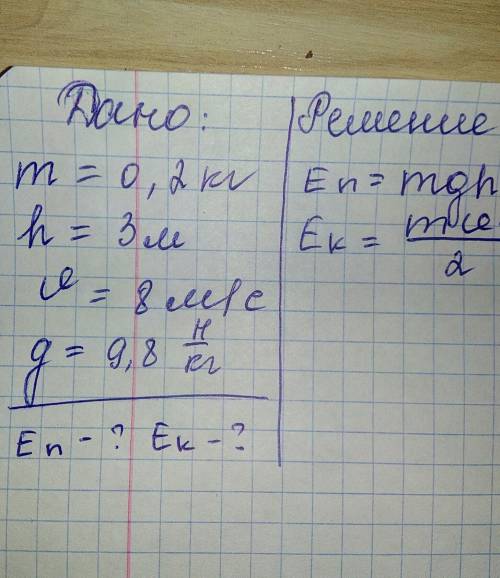 Дано:
m = 0,2 кг
h = 3 м
υ = 8 м/с
g = 9,8 Н/кг
Eп - ? Eк - ?
Решение
Eп = mgh
Eк = mυ/2